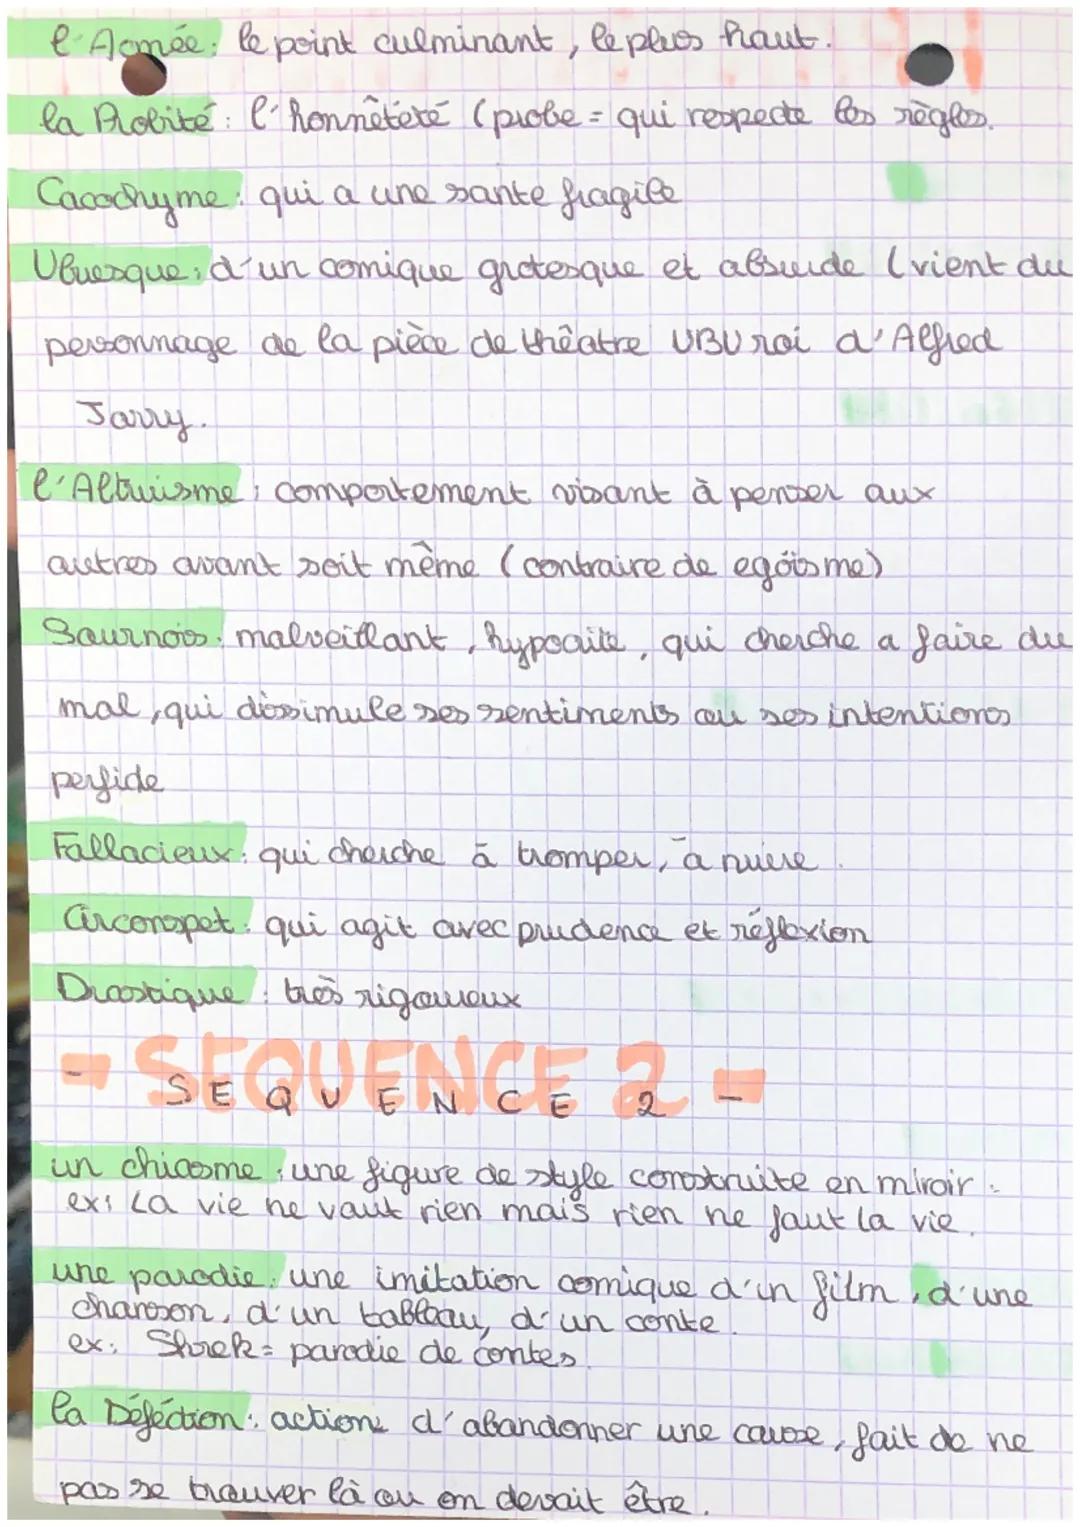 l'Acmée : le point culminant, le plus haut.
la Probité : l'honnêteté (probe = qui respecte les règles.
Cacochyme : qui a une sante fragile
Ubuesque : d'un comique grotesque et absurde (vient du
personnage de la pièce de thêatre UBU roi d'Alfred
Jarry.
l'Altruisme : comportement visant à penser aux
autres avant soit même (contraire de egöisme)
Sournois : malveillant, hypocrite, qui cherche a faire du
mal, qui dissimule ses sentiments ou ses intentions
perfide
Fallacieux : qui cherche à tromper, à nuire.
Circonspet : qui agit avec prudence et réflexion
Drastique : très rigoureux
- SEQUENCE 2 -
- SEQUENCE 2 -
un chiasme : une figure de style construite en miroir :
ex : La vie ne vaut rien mais rien ne faut la vie.
une parodie : une imitation comique d'un film, d'une
chanson, d'un tableau, d'un conte.
ex : Shrek = parodie de contes.
la Déféction : action d'abandonner une cause, fait de ne
pas se trouver là ou on devait être.